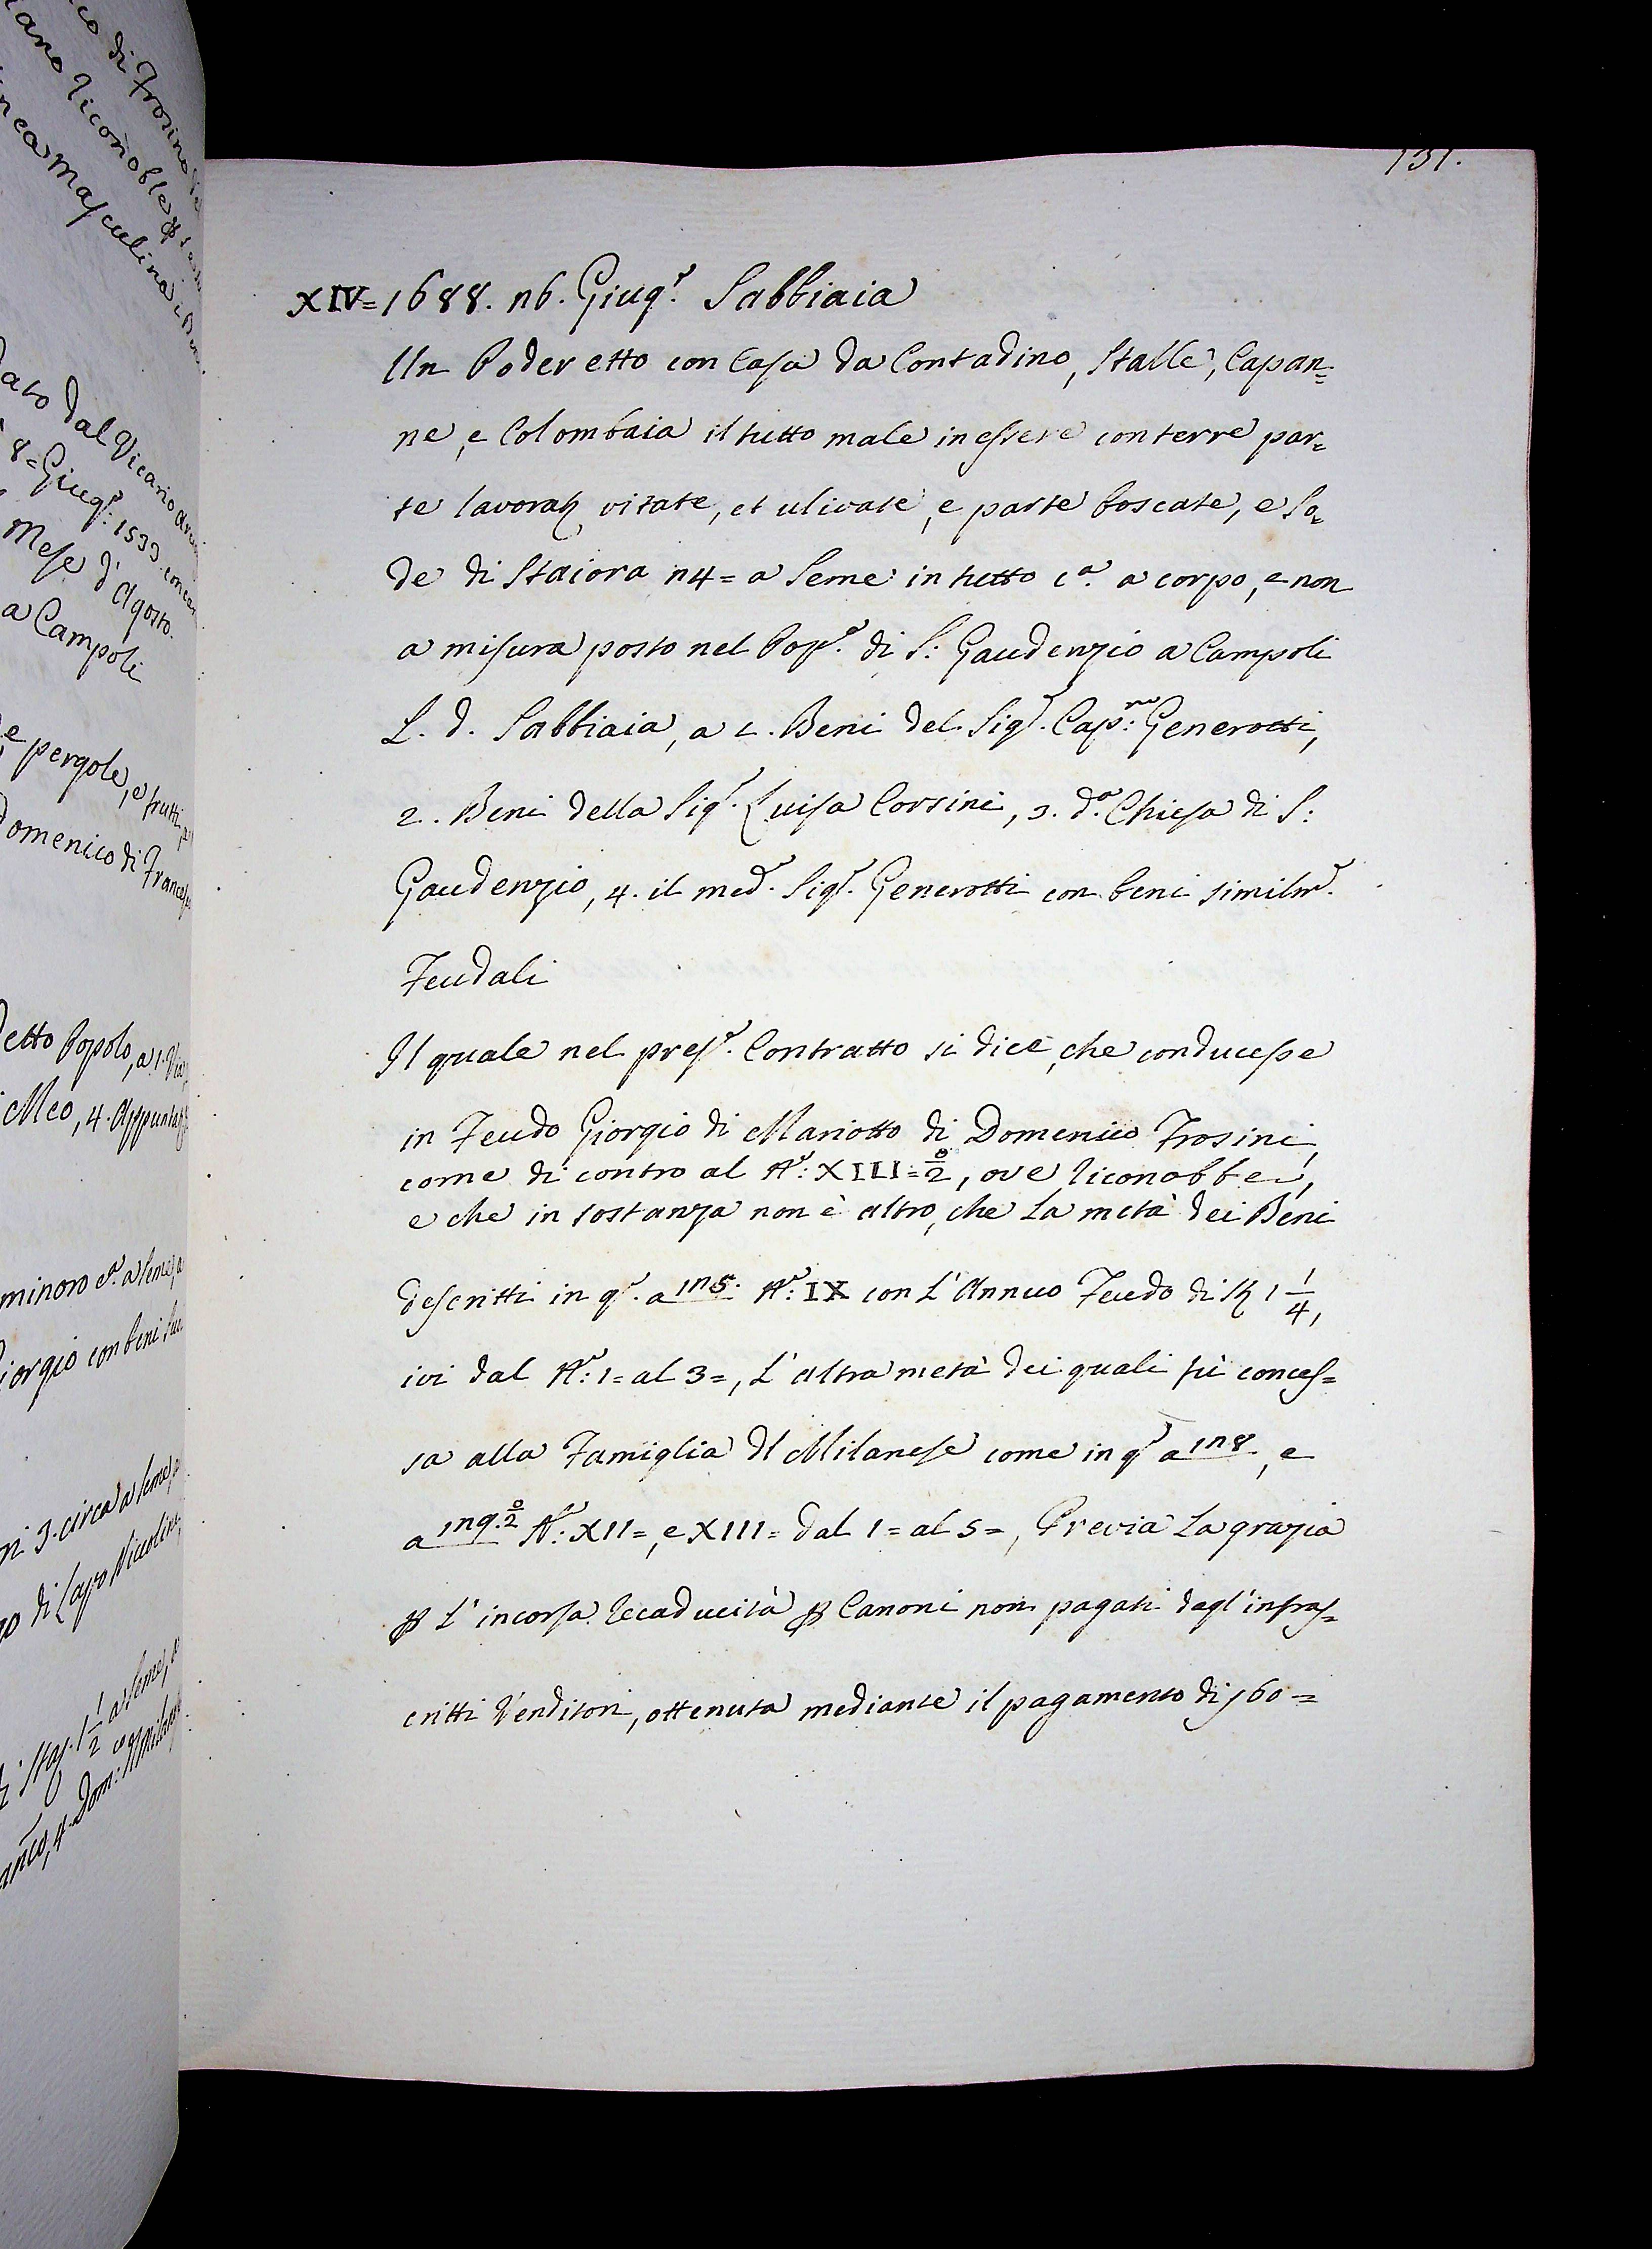 131.
XIV= 1688. 16. Giugº. Sabbiaia
Un Poderetto con Casa da Contadino, Stalle, Capan=
ne, e Colombaia il tutto male in essere con terre par=
te lavorat, vitate, et ulivate, e parte boscate, e So=
de di Staiora 14= a Seme in tutto cª. a corpo, e non
a misura posto nel Popº. di S: Gaudenzio a Campoli
L. d. Sabbiaia, a 1. Beni del Sigʳ. Capⁿᵒ: Generotti,
2. Beni della Sigʳ. Luisa Corsini, 3. dª. Chiesa di S:
Gaudenzio, 4. il medº. Sigʳ. Generotti con beni similmᵉ.
Feudali
Il quale nel presᵉ. Contratto si dice, che conducesse
in Feudo Giorgio di Mariotto di Domenico Frosini,
come di contro al Nº: XIII= 2, ove riconobbe,
e che in sostanza non è altro, che la metà dei Beni
descritti in qº. a 115. Nº: IX con l'Annuo Feudo di 1 1/4,
ivi dal Nº: 1= al 3=, l'altra metà dei quali fù conces=
sa alla Famiglia del Milanese come in qº a 118, e
a 119. Nº: XII=, e XIII= dal 1= al 5=, Previa la grazia
ꝑ l'incorsa decaducità ꝑ Canoni non pagati dagl'infras=
critti Venditori, ottenuta mediante il pagamento di 60=
di Frosino
riconobbe ꝑ
Masculina
dato dal Vicario
8= Giugº: 1533.
Mese d'Agosto.
a Campoli
e pergole, e frutti,
Domenico di Frances
detto Popolo, a 1. Via
Meo, 4.
cª. a Seme, a
Giorgio con beni
3. circa a Seme,
di Lapo Niccolini,
Staj. 1 1/2 a Seme,
4. Dom: Milanese